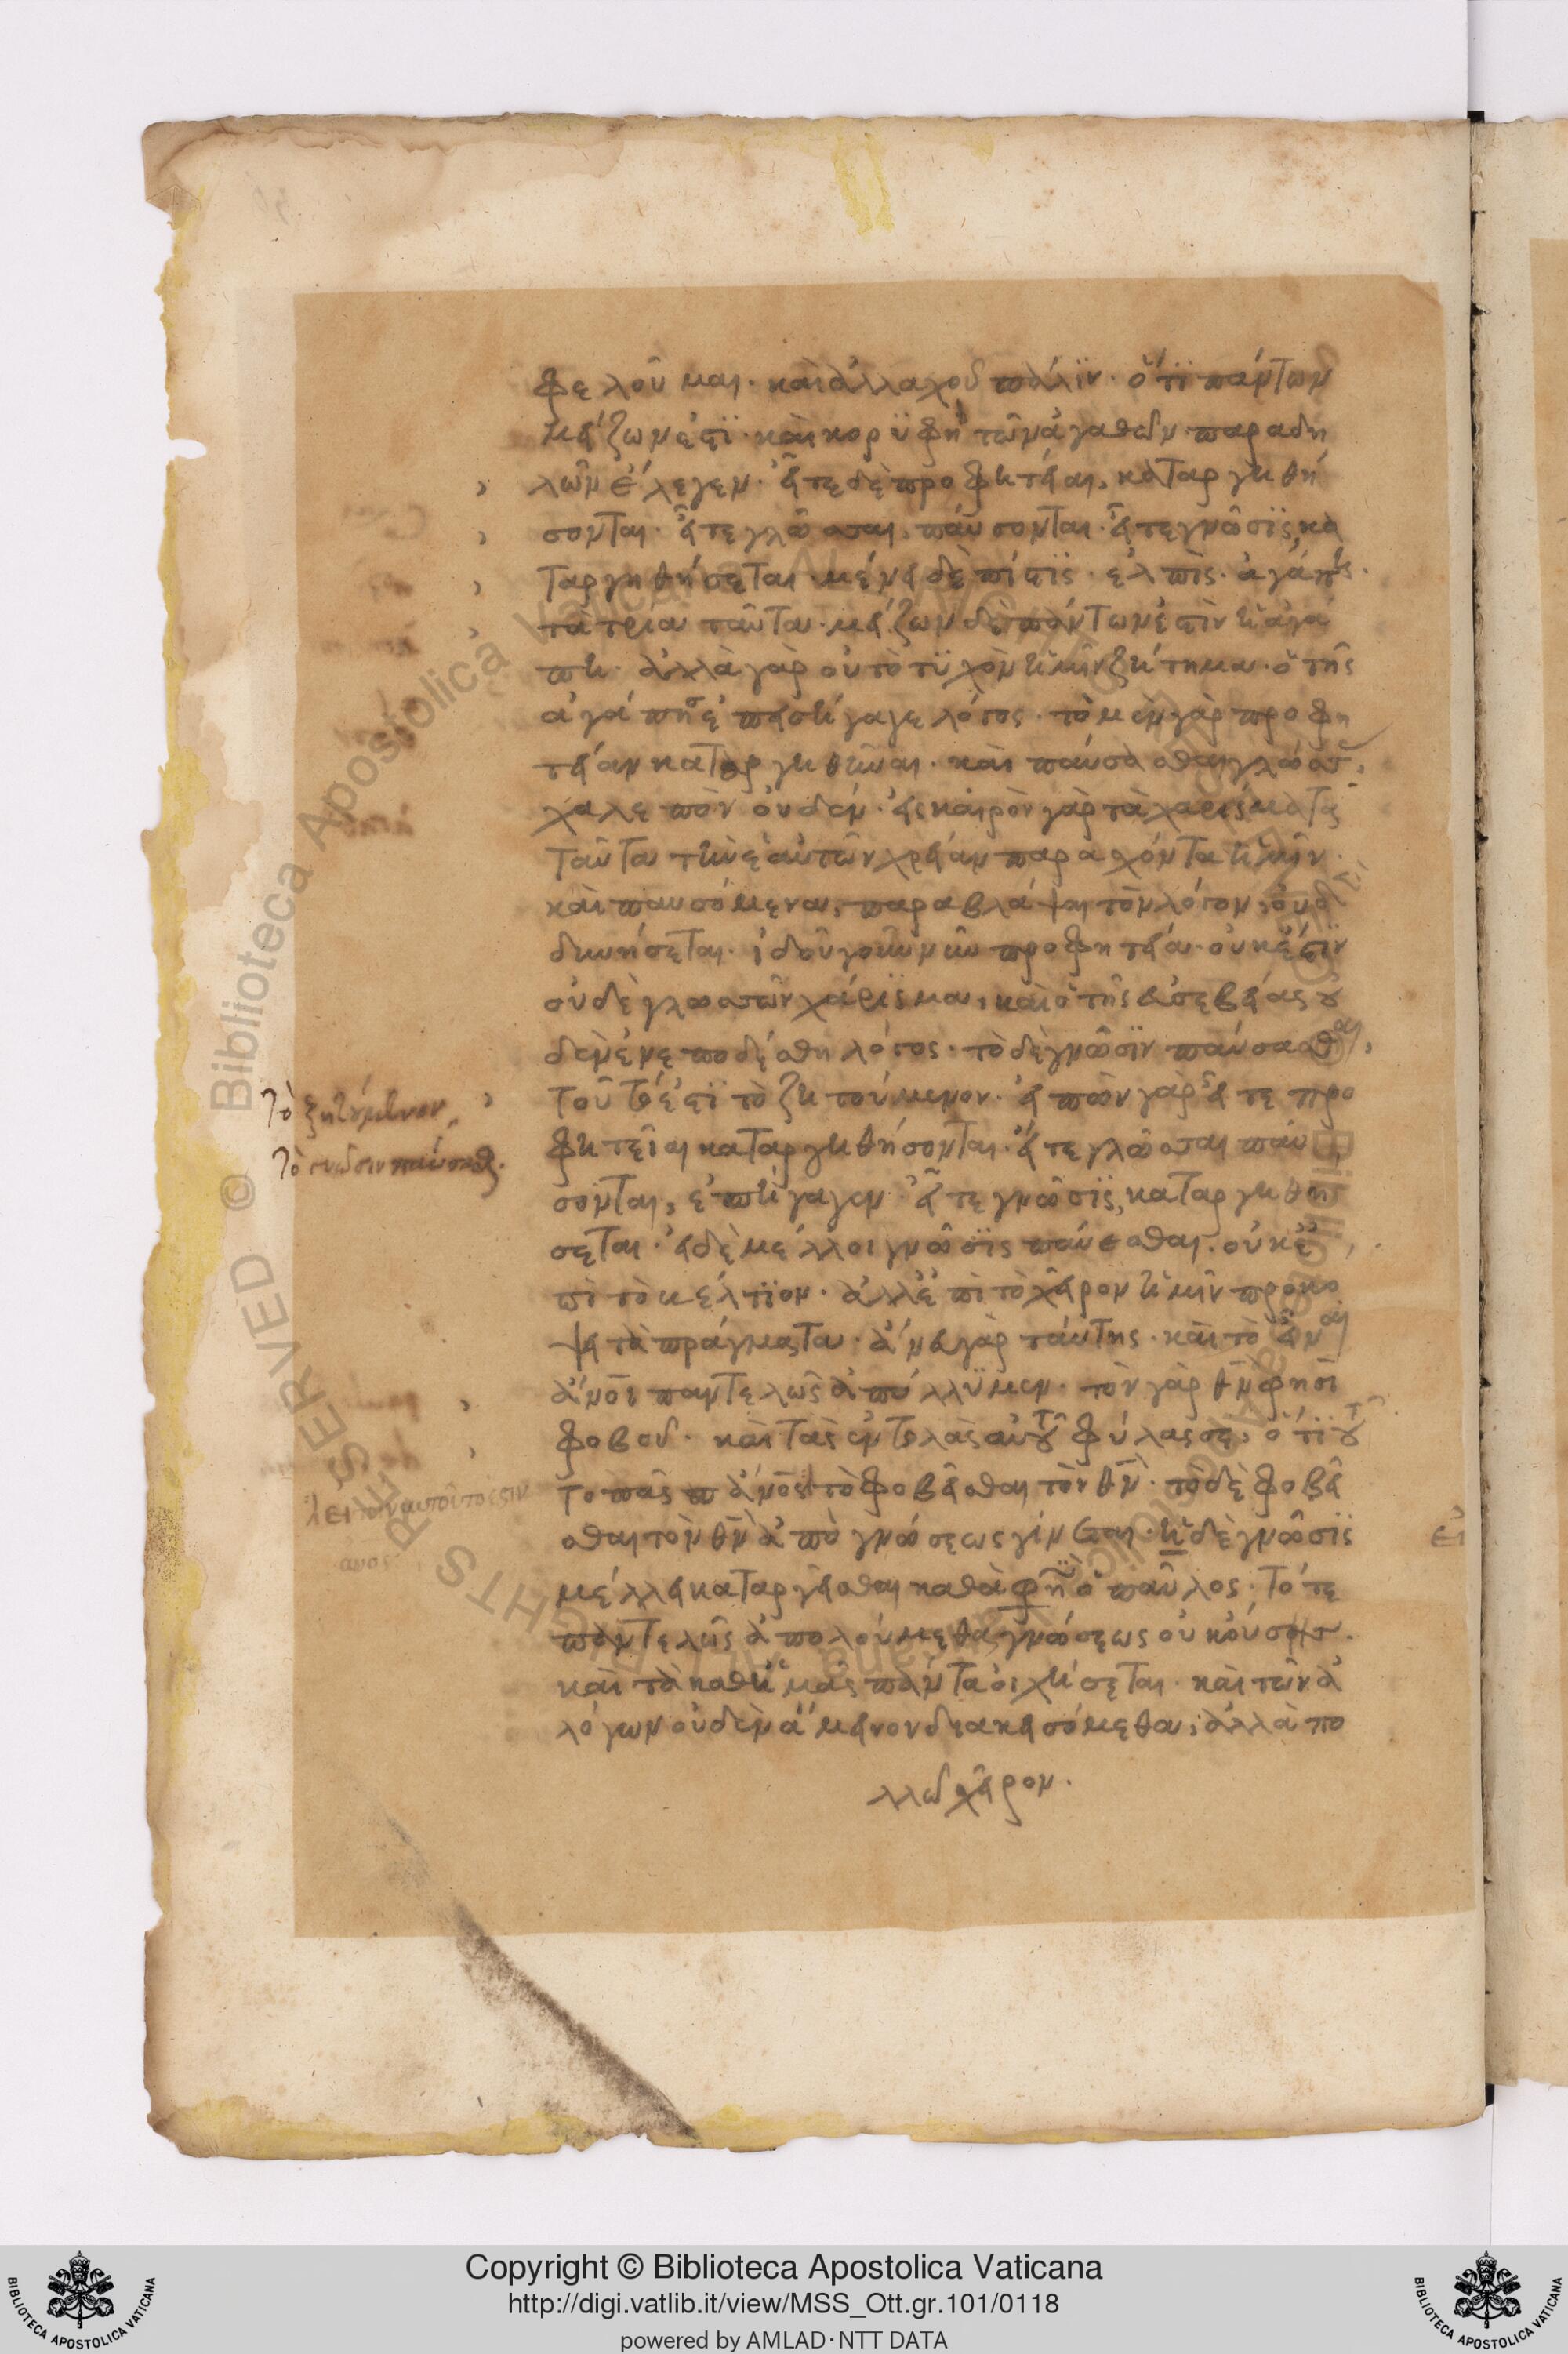 φελοῦμαι· καὶ ἀλλαχοῦ πάλϊν· ὅτϊ πάντων
μείζων ἐστϊ· καὶ κορϋφὴ τῶν ἀγαθῶν παραδη
λῶν ἔλεγεν· εἴτε δὲ προφητεῖαι, καταργηθή
σονται· εἴτε γλῶσσαι, παύσονται· εἴτε γνῶσϊς, κα
ταργηθήσεται· μένει δὲ πίστϊς· ἐλπὶς· ἀγάπη·
τὰ τρία ταῦτα· μείζων δὲ πάντων ἐστὶν ἡ ἀγά
πη· ἀλλὰ γὰρ οὐ τὸ τϋχὸν ἡμῖν ζήτημα· ὁ τῆς
ἀγάπης ἐπεισήγαγε λόγος· τὸ μὲν γὰρ προφη
τείαν καταργηθῆναι· καὶ παύσασθαι γλώσσας,
χαλεπὸν οὐδέν· εἰς καιρὸν γὰρ τὰ χαρίσματα
ταῦτα τὴν ἑαυτῶν χρείαν παρασχόντα ἡμῖν·
καὶ παυσόμενα, παραβλάψαι τὸν λόγον, οὐ
δυνήσεται· ἰδοῦ γοῦν νῦν προφητεία οὐκ ἔστϊν
οὐδὲ γλωσσῶν χάρϊσμα, καὶ ὁ τῆς εὐσεβείας οὐ
δὲν ἐνεποδίσθη λόγος· τὸ δὲ γνῶσϊν παύσασθαι,
τοῦτό ἐστϊ τὸ ζητούμενον· εἰπὼν γὰρ εἴτε προ
φητεῖαι καταργηθήσονται· εἴτε γλῶσσαι παύ
σονται, ἐπήγαγεν εἴτε γνῶσϊς, καταργηθή
σεται· εἰ δὲ μέλλοι γνῶσϊς παύεσθαι· οὐκ ἐ
πὶ τὸ βέλτϊον· ἀλλ' ἐπὶ τὸ χεῖρον ἡμῖν προκό
ψει τὰ πράγματα· ἄνευ γὰρ ταύτης· καὶ τὸ εἶναι
ἄνοι παντελῶς ἀπόλλϋμεν· τὸν γὰρ θν φησὶ
φοβοῦ· καὶ τὰς ἐντολὰς αὐτοῦ φύλασσε, ὅτϊ τοῦ
το πᾶς ἄνος τὸ φοβεῖσθαι τὸν θν· τὸ δὲ φοβεῖ
σθαι τὸν θν ἀπὸ γνώσεως γίνεται· ἡ δὲ γνῶσϊς
μέλλει καταργεῖσθαι καθά φησϊν ὁ παῦλος· τότε
παντελῶς ἀπολούμεθα γνώσεως οὐκ οὔσης·
καὶ τὰ καθ' ἡμᾶς πάντα οἰχήσεται· καὶ τῶν ἀ
λόγων οὐδὲν ἄμεινον διακεισόμεθα, ἀλλὰ πο
λλῶ χεῖρον·
Τὸ ζητούμενον
Τὸ γνῶσιν παύσασθ.
© Biblioteca Apostolica Vaticana
Copyright © Biblioteca Apostolica Vaticana
http://digi.vatlib.it/view/MSS_Ott.gr.101/0118
powered by AMLAD·NTT DATA
BIBLIOTECA APOSTOLICA VATICANA
BIBLIOTECA APOSTOLICA VATICANA